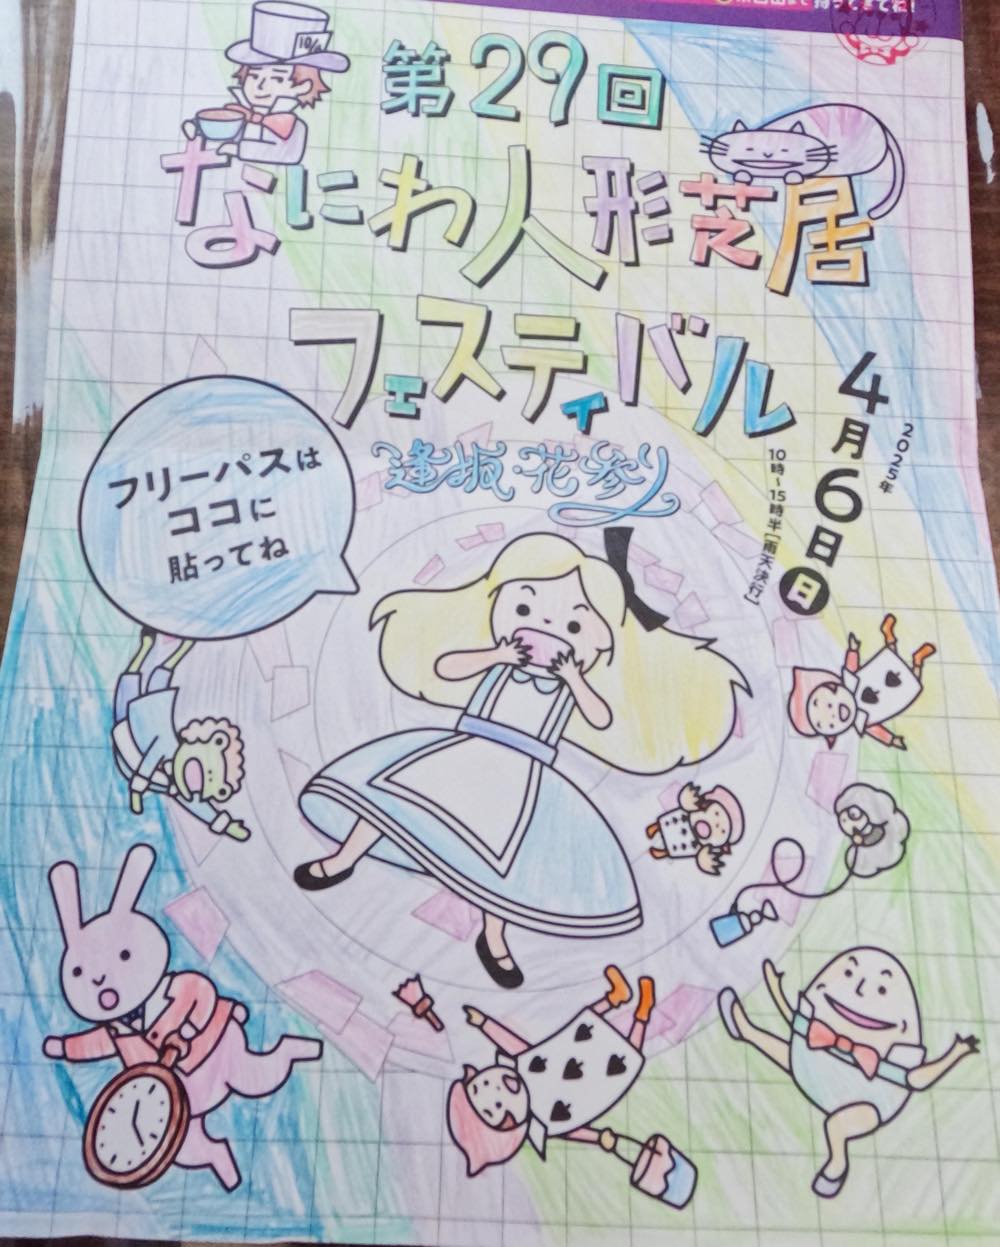 持ってきてね!
10/6
第29回
なにわ人形芝居
フェスティバル
逢坂・花参り
2025年
4月6日日
10時〜15時半[雨天決行]
フリーパスは
ココに
貼ってね